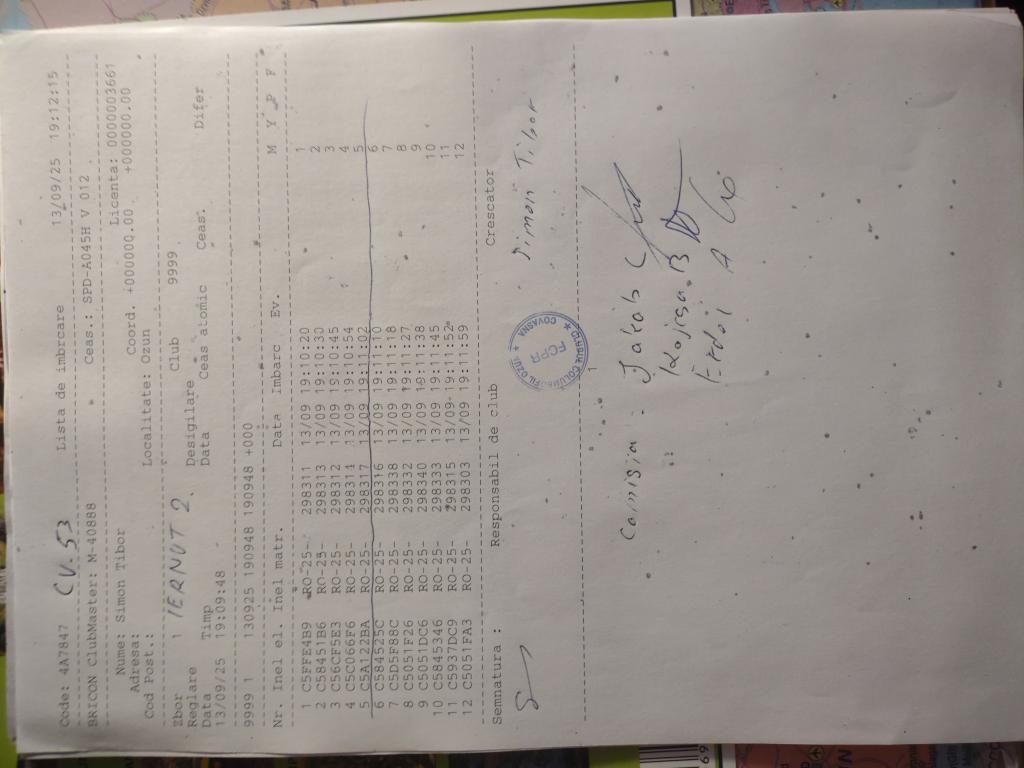 Code: 4A7847 CV-53 Lista de imbrcare 13/09/25 19:12:15
BRICON ClubMaster: M-40888 Ceas.: SPD-A045H V 012
Nume: Simon Tibor Licenta: 00000003661
Adresa: Coord. +000000.00 +000000.00
Cod Post.: Localitate: Ozun
Zbor 1 IERNUT 2. Club 9999
Reglare Desigilare
Data Timp Data Ceas atomic Ceas. Difer
13/09/25 19:09:48
9999 1 130925 190948 190948 +000
Nr. Inel el. Inel matr. Data Imbarc Ev. M Y P F
1 C5FFE4B9 RO-25- 298311 13/09 19:10:20 1
2 C58451B6 RO-25- 298313 13/09 19:10:30 2
3 C5CFFE3 RO-25- 298312 13/09 19:10:45 3
4 C5C066F6 RO-25- 298314 13/09 19:10:54 4
5 C5A122BA RO-25- 298317 13/09 19:11:02 5
6 C584525C RO-25- 298316 13/09 19:11:10 6
7 C5D5F88C RO-25- 298338 13/09 19:11:18 7
8 C5051F26 RO-25- 298332 13/09 19:11:27 8
9 C5051DC6 RO-25- 298340 13/09 19:11:38 9
10 C5845346 RO-25- 298333 13/09 19:11:45 10
11 C5937DC9 RO-25- 298315 13/09 19:11:52 11
12 C5051FA3 RO-25- 298303 13/09 19:11:59 12
Semnatura : Responsabil de club Crescator
Simon Tibor
FCPR
COVASNA
1
Comisia